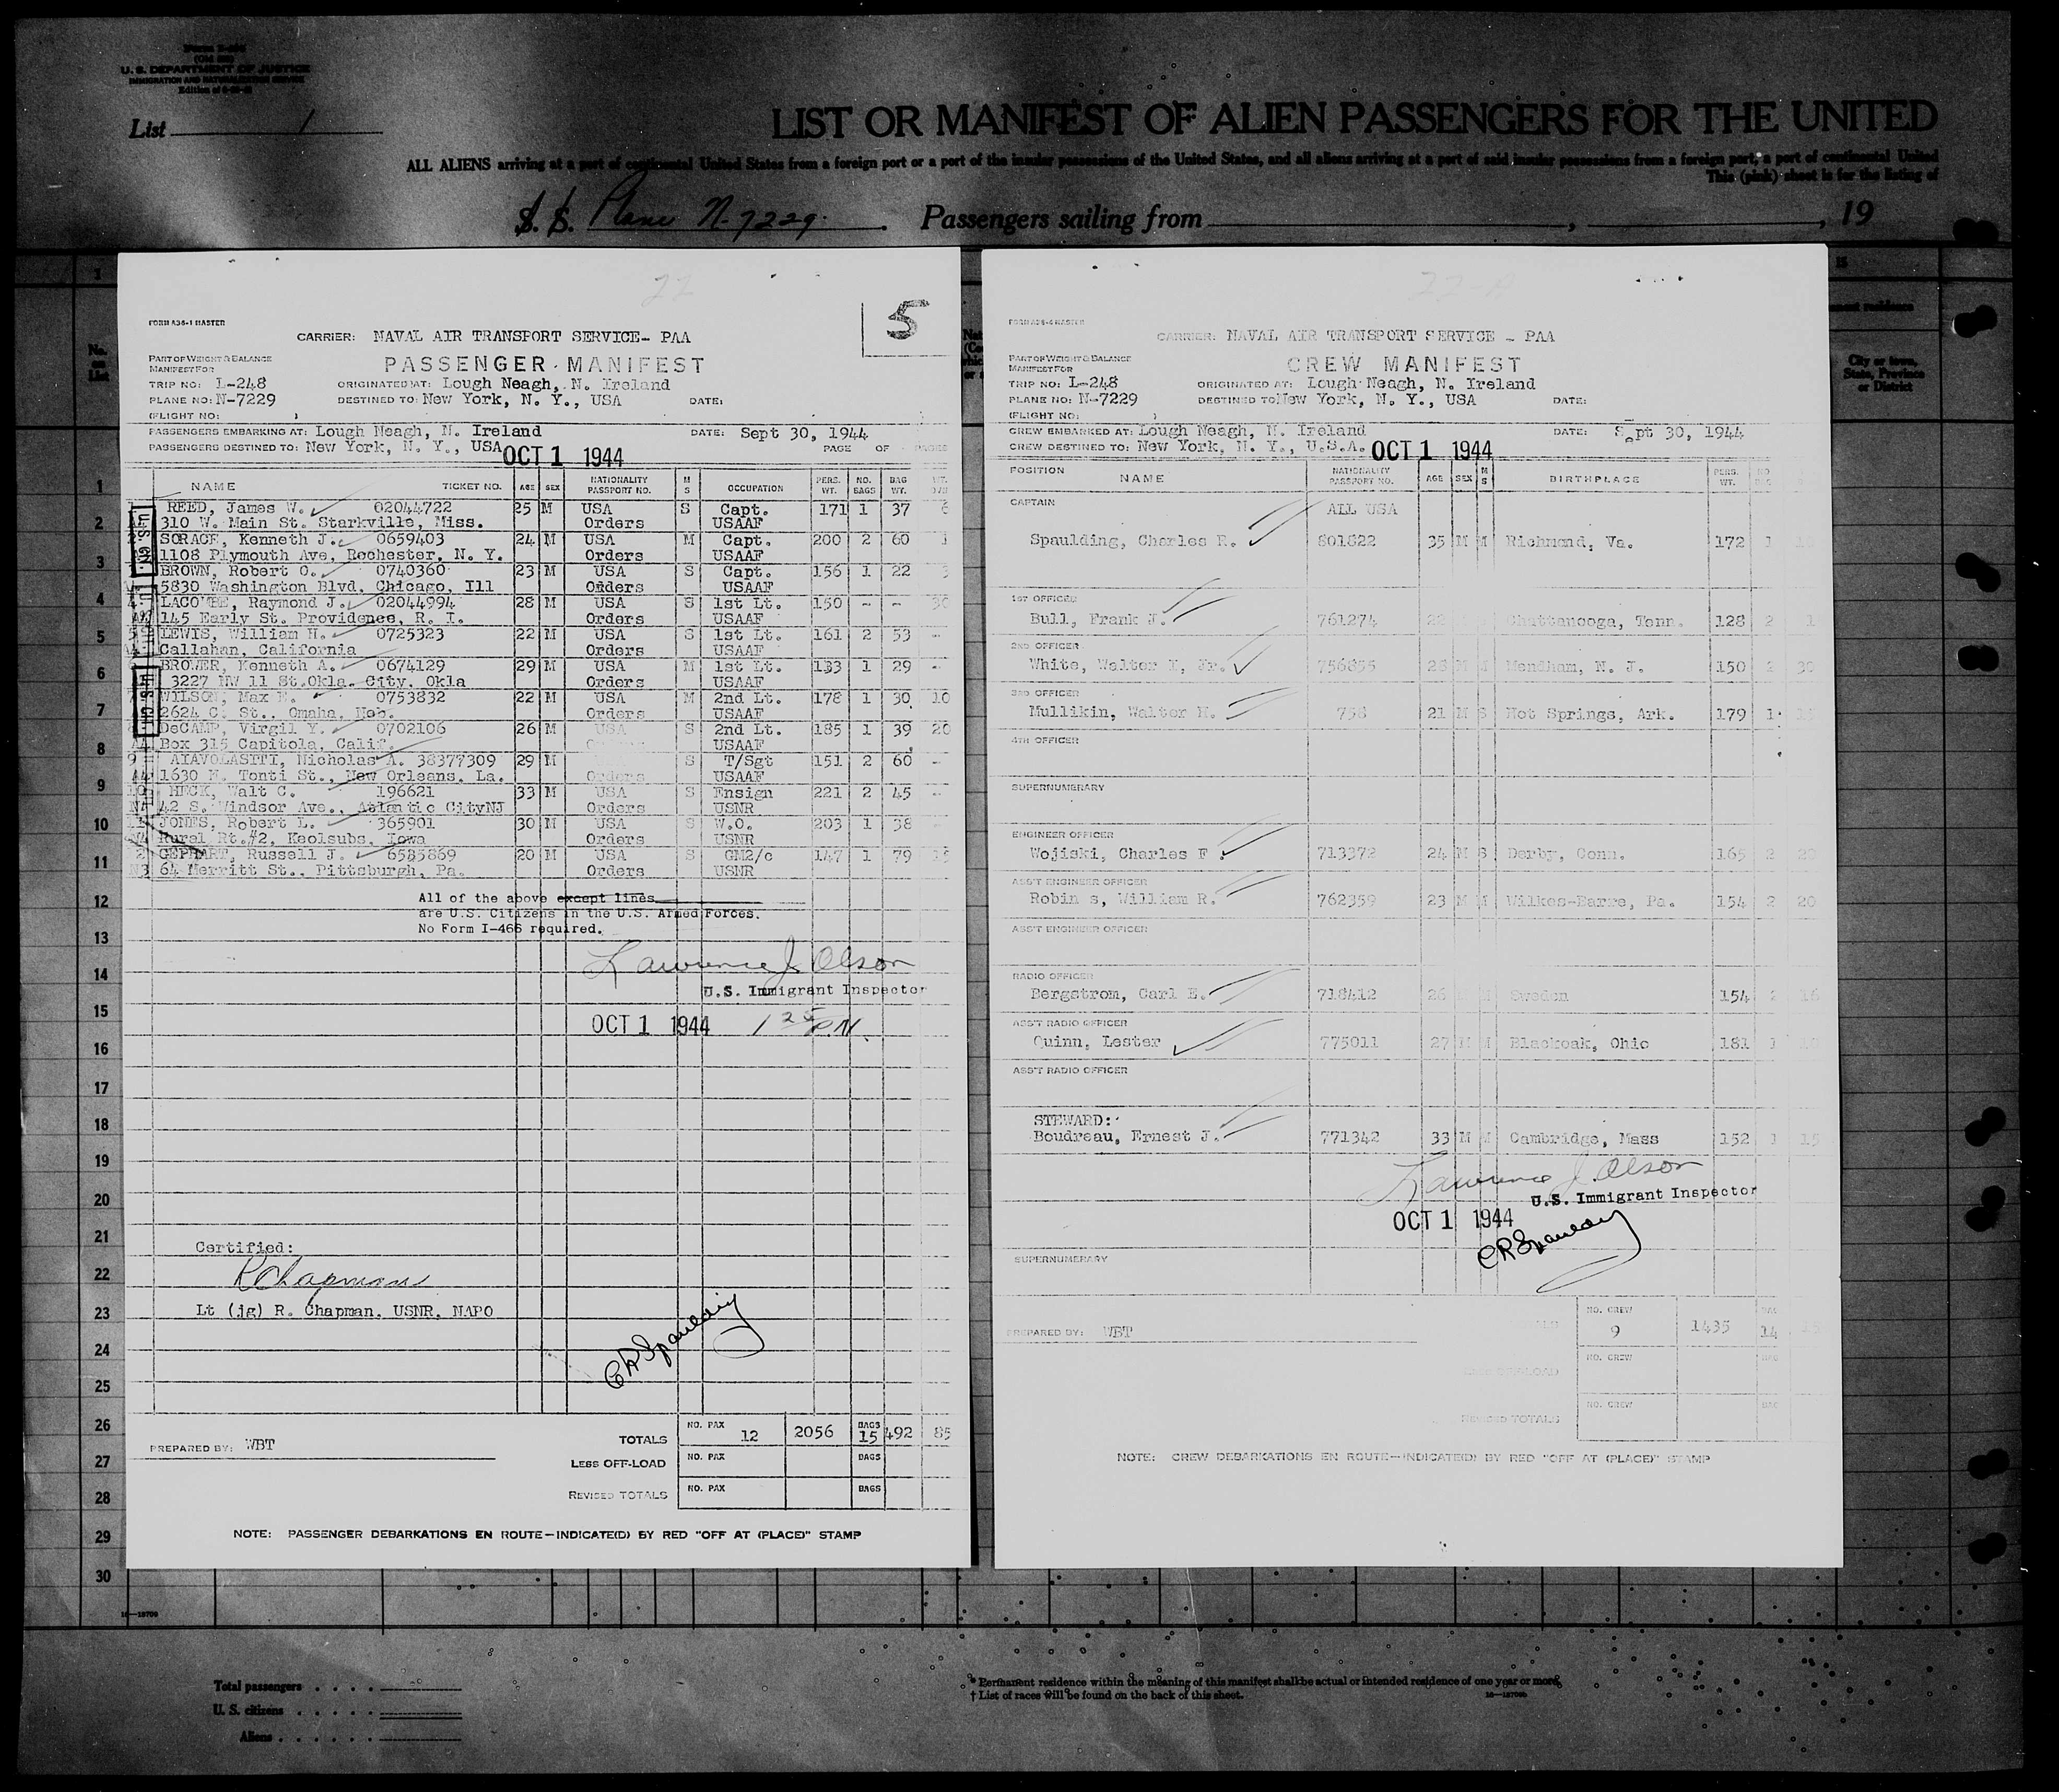 U. S. DEPARTMENT OF JUSTICE
IMMIGRATION AND NATURALIZATION SERVICE
List 1
LIST OR MANIFEST OF ALIEN PASSENGERS FOR THE UNITED
ALL ALIENS arriving at a port of continental United States from a foreign port or a port of the insular possessions of the United States, and all aliens arriving at a port of said insular possessions from a foreign port, a port of continental United
This (pink) sheet is for the listing of
S. S. Plane N-7229. Passengers sailing from , , 19
22
5
FORM A36-1 MASTER
CARRIER: NAVAL AIR TRANSPORT SERVICE- PAA
PART OF WEIGHT & BALANCE
MANIFEST FOR
PASSENGER MANIFEST
TRIP NO: L-248 ORIGINATED AT: Lough Neagh, N. Ireland
PLANE NO: N-7229 DESTINED TO: New York, N. Y., USA DATE:
(FLIGHT NO: )
PASSENGERS EMBARKING AT: Lough Neagh, N. Ireland DATE: Sept 30, 1944
PASSENGERS DESTINED TO: New York, N. Y., USA OCT 1 1944 PAGE OF PAGES
NAME TICKET NO. AGE SEX NATIONALITY PASSPORT NO. M S OCCUPATION PERS. WT. NO. BAGS BAG WT.
REED, James W. 02044722 25 M USA S Capt. 171 1 37
310 W. Main St. Starkville, Miss. Orders USAAF
SORACE, Kenneth J. 0659403 24 M USA M Capt. 200 2 60
1108 Plymouth Ave, Rochester, N. Y. Orders USAAF
BROWN, Robert O. 0740360 23 M USA S Capt. 156 1 22
5830 Washington Blvd, Chicago, Ill Orders USAAF
LACOMBE, Raymond J. 02044994 28 M USA S 1st Lt. 150 - - 30
145 Early St. Providence, R. I. Orders USAAF
LEWIS, William H. 0725323 22 M USA S 1st Lt. 161 2 53 -
Callahan, California Orders USAAF
BROWER, Kenneth A. 0674129 29 M USA M 1st Lt. 133 1 29 -
3227 NW 11 St.Okla. City, Okla Orders USAAF
WILSON, Max E. 0753832 22 M USA M 2nd Lt. 178 1 30 10
2624 C. St., Omaha, Neb. Orders USAAF
DeCAMP, Virgil Y. 0702106 26 M USA S 2nd Lt. 185 1 39 20
Box 315 Capitola, Calif. USAAF
AIAVOLASITI, Nicholas A. 38377309 29 M S T/Sgt 151 2 60 -
1630 N. Tonti St., New Orleans, La. Orders USAAF
HECK, Walt C. 196621 33 M USA S Ensign 221 2 45
42 S. Windsor Ave., Atlantic CityNJ Orders USNR
JONES, Robert L. 365901 30 M USA S W.O. 203 1 38
Rural Rt.#2, Keolsubs, Iowa Orders USNR
GEPHART, Russell J. 6585869 20 M USA S GM2/c 147 1 79 15
64 Merritt St., Pittsburgh, Pa. Orders USNR
All of the above except lines
are U.S. Citizens in the U.S. Armed Forces.
No Form I-466 required.
Lawrence J. Olson
U.S. Immigrant Inspector
OCT 1 1944 1 25 PM
Certified:
R Chapman
Lt (jg) R. Chapman, USNR, NAPO
C R Spaulding
PREPARED BY: WBT
TOTALS NO. PAX 12 2056 BAGS 15 492 85
LESS OFF-LOAD NO. PAX BAGS
REVISED TOTALS NO. PAX BAGS
NOTE: PASSENGER DEBARKATIONS EN ROUTE—INDICATE(D) BY RED "OFF AT (PLACE)" STAMP
22-A
CARRIER: NAVAL AIR TRANSPORT SERVICE - PAA
PART OF WEIGHT & BALANCE
MANIFEST FOR
CREW MANIFEST
TRIP NO: L-248 ORIGINATED AT: Lough Neagh, N. Ireland
PLANE NO: N-7229 DESTINED TO: New York, N. Y., USA DATE:
(FLIGHT NO: )
CREW EMBARKED AT: Lough Neagh, N. Ireland DATE: Sept 30, 1944
CREW DESTINED TO: New York, N. Y., U.S.A. OCT 1 1944
POSITION NAME NATIONALITY PASSPORT NO. AGE SEX M S BIRTHPLACE PERS. WT.
CAPTAIN ALL USA
Spaulding, Charles R. 801822 35 M M Richmond, Va. 172 1
1ST OFFICER
Bull, Frank J. 761274 Chattanooga, Tenn. 128 2
2ND OFFICER
White, Walter I, Jr. 756855 M M Mendham, N. J. 150 2 30
3RD OFFICER
Mullikin, Walter H. 758 21 M S Hot Springs, Ark. 179 1
4TH OFFICER
SUPERNUMERARY
ENGINEER OFFICER
Wojiski, Charles F. 713372 24 M S Derby, Conn. 165 2 20
ASS'T ENGINEER OFFICER
Robin s, William R. 762359 23 M M Wilkes-Barre, Pa. 154 2 20
ASS'T ENGINEER OFFICER
RADIO OFFICER
Bergstrom, Carl E. 718412 26 M Sweden 154 2 16
ASS'T RADIO OFFICER
Quinn, Lester 775011 27 M M Blackoak, Ohio 181 1
ASS'T RADIO OFFICER
STEWARD:
Boudreau, Ernest J. 771342 33 M M Cambridge, Mass 152 1 15
Lawrence J. Olson
U.S. Immigrant Inspector
OCT 1 1944
C R Spaulding
SUPERNUMERARY
PREPARED BY: WBT
TOTALS NO. CREW 9 1435 14
LESS OFF-LOAD NO. CREW
REVISED TOTALS NO. CREW
NOTE: CREW DEBARKATIONS EN ROUTE—INDICATE(D) BY RED "OFF AT (PLACE)" STAMP
No. on List
City or town, State, Province or District
1
2
3
4
5
6
7
8
9
10
11
12
13
14
15
16
17
18
19
20
21
22
23
24
25
26
27
28
29
30
Total passengers
U. S. citizens
Aliens
* Permanent residence within the meaning of this manifest shall be actual or intended residence of one year or more.
† List of races will be found on the back of this sheet.